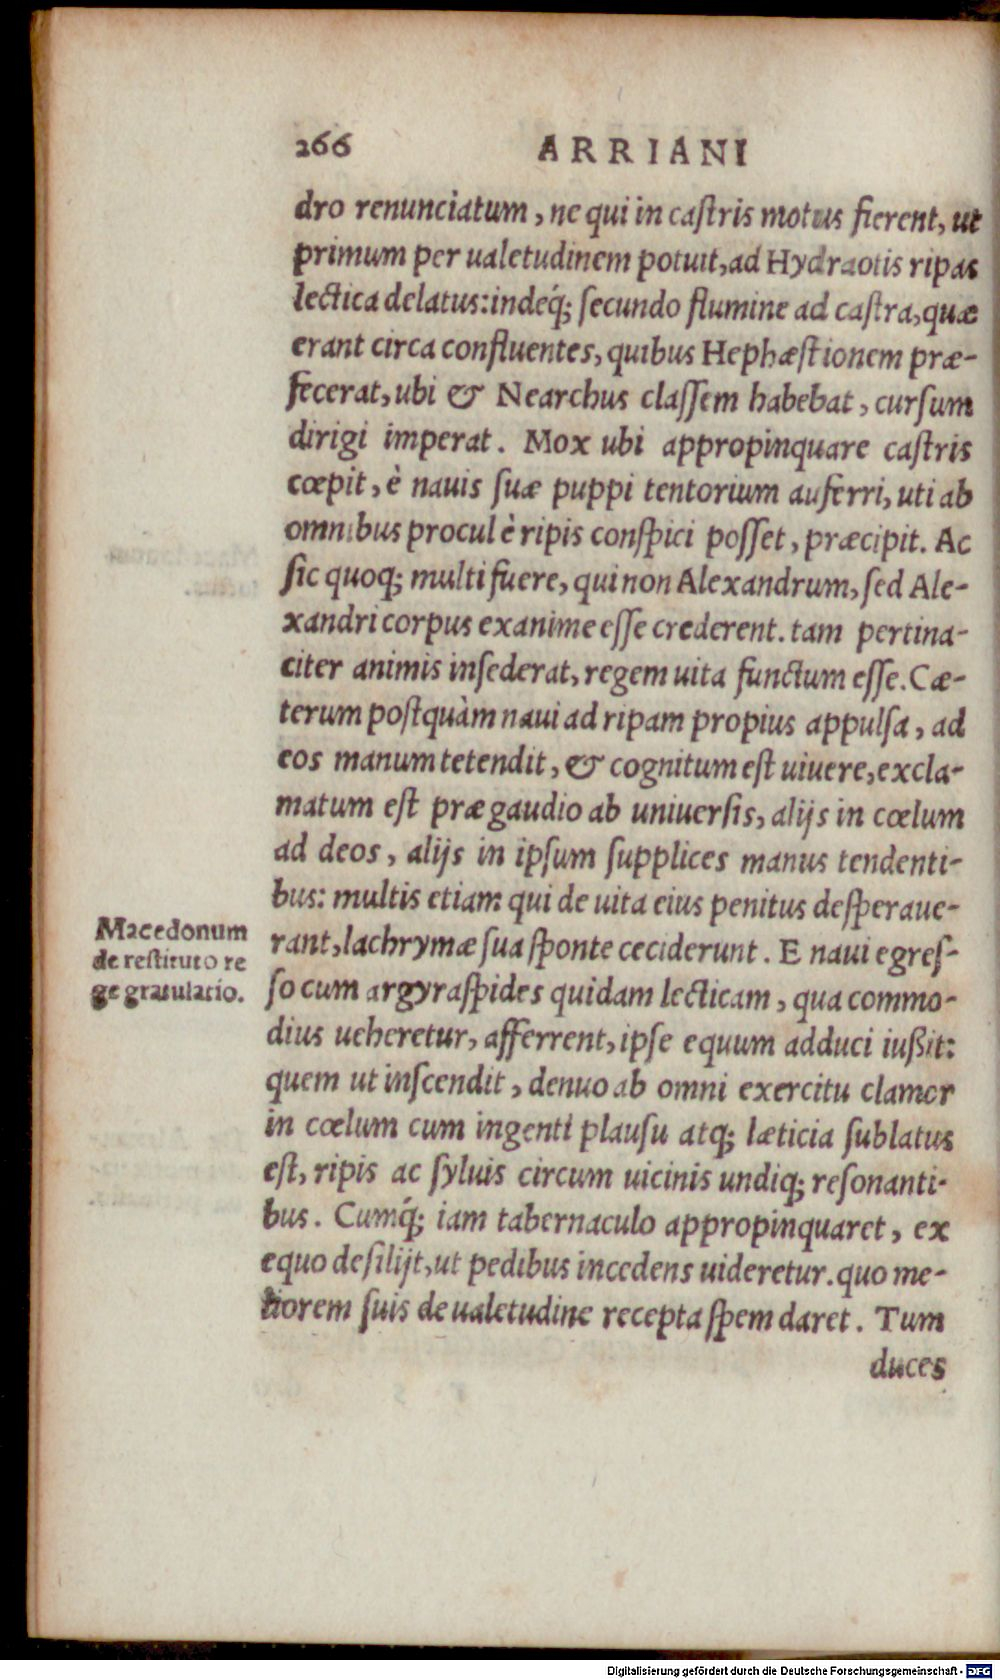 266 ARRIANI
dro renunciatum, ne qui in caſtris motus fierent, ut
primum per ualetudinem potuit, ad Hydraotis ripas
lectica delatus: indeq́; ſecundo flumine ad caſtra, quæ
erant circa confluentes, quibus Hephæſtionem præ-
fecerat, ubi & Nearchus claſſem habebat, curſum
dirigi imperat. Mox ubi appropinquare caſtris
cœpit, è nauis ſuæ puppi tentorium auferri, uti ab
omnibus procul è ripis conſpici poſſet, præcipit. Ac
ſic quoq; multi fuere, qui non Alexandrum, ſed Ale-
xandri corpus exanime eſſe crederent. tam pertina-
citer animis inſederat, regem uita functum eſſe. Cæ-
terum poſtquàm naui ad ripam propius appulſa, ad
eos manum tetendit, & cognitum eſt uiuere, excla-
matum eſt præ gaudio ab uniuerſis, alijs in cœlum
ad deos, alijs in ipſum ſupplices manus tendenti-
bus: multis etiam qui de uita eius penitus deſperaue-
rant, lachrymæ ſua ſponte ceciderunt. E naui egreſ-
ſo cum argyraſpides quidam lecticam, qua commo-
dius ueheretur, afferrent, ipſe equum adduci iußit:
quem ut inſcendit, denuo ab omni exercitu clamor
in cœlum cum ingenti plauſu atq; læticia ſublatus
eſt, ripis ac ſyluis circum uicinis undiq; reſonanti-
bus. Cumq́; iam tabernaculo appropinquaret, ex
equo deſilijt, ut pedibus incedens uideretur. quo me-
liorem ſuis de ualetudine recepta ſpem daret. Tum
duces
Macedonum
de reſtituto re
ge gratulatio.
Digitalisierung gefördert durch die Deutsche Forschungsgemeinschaft - DFG